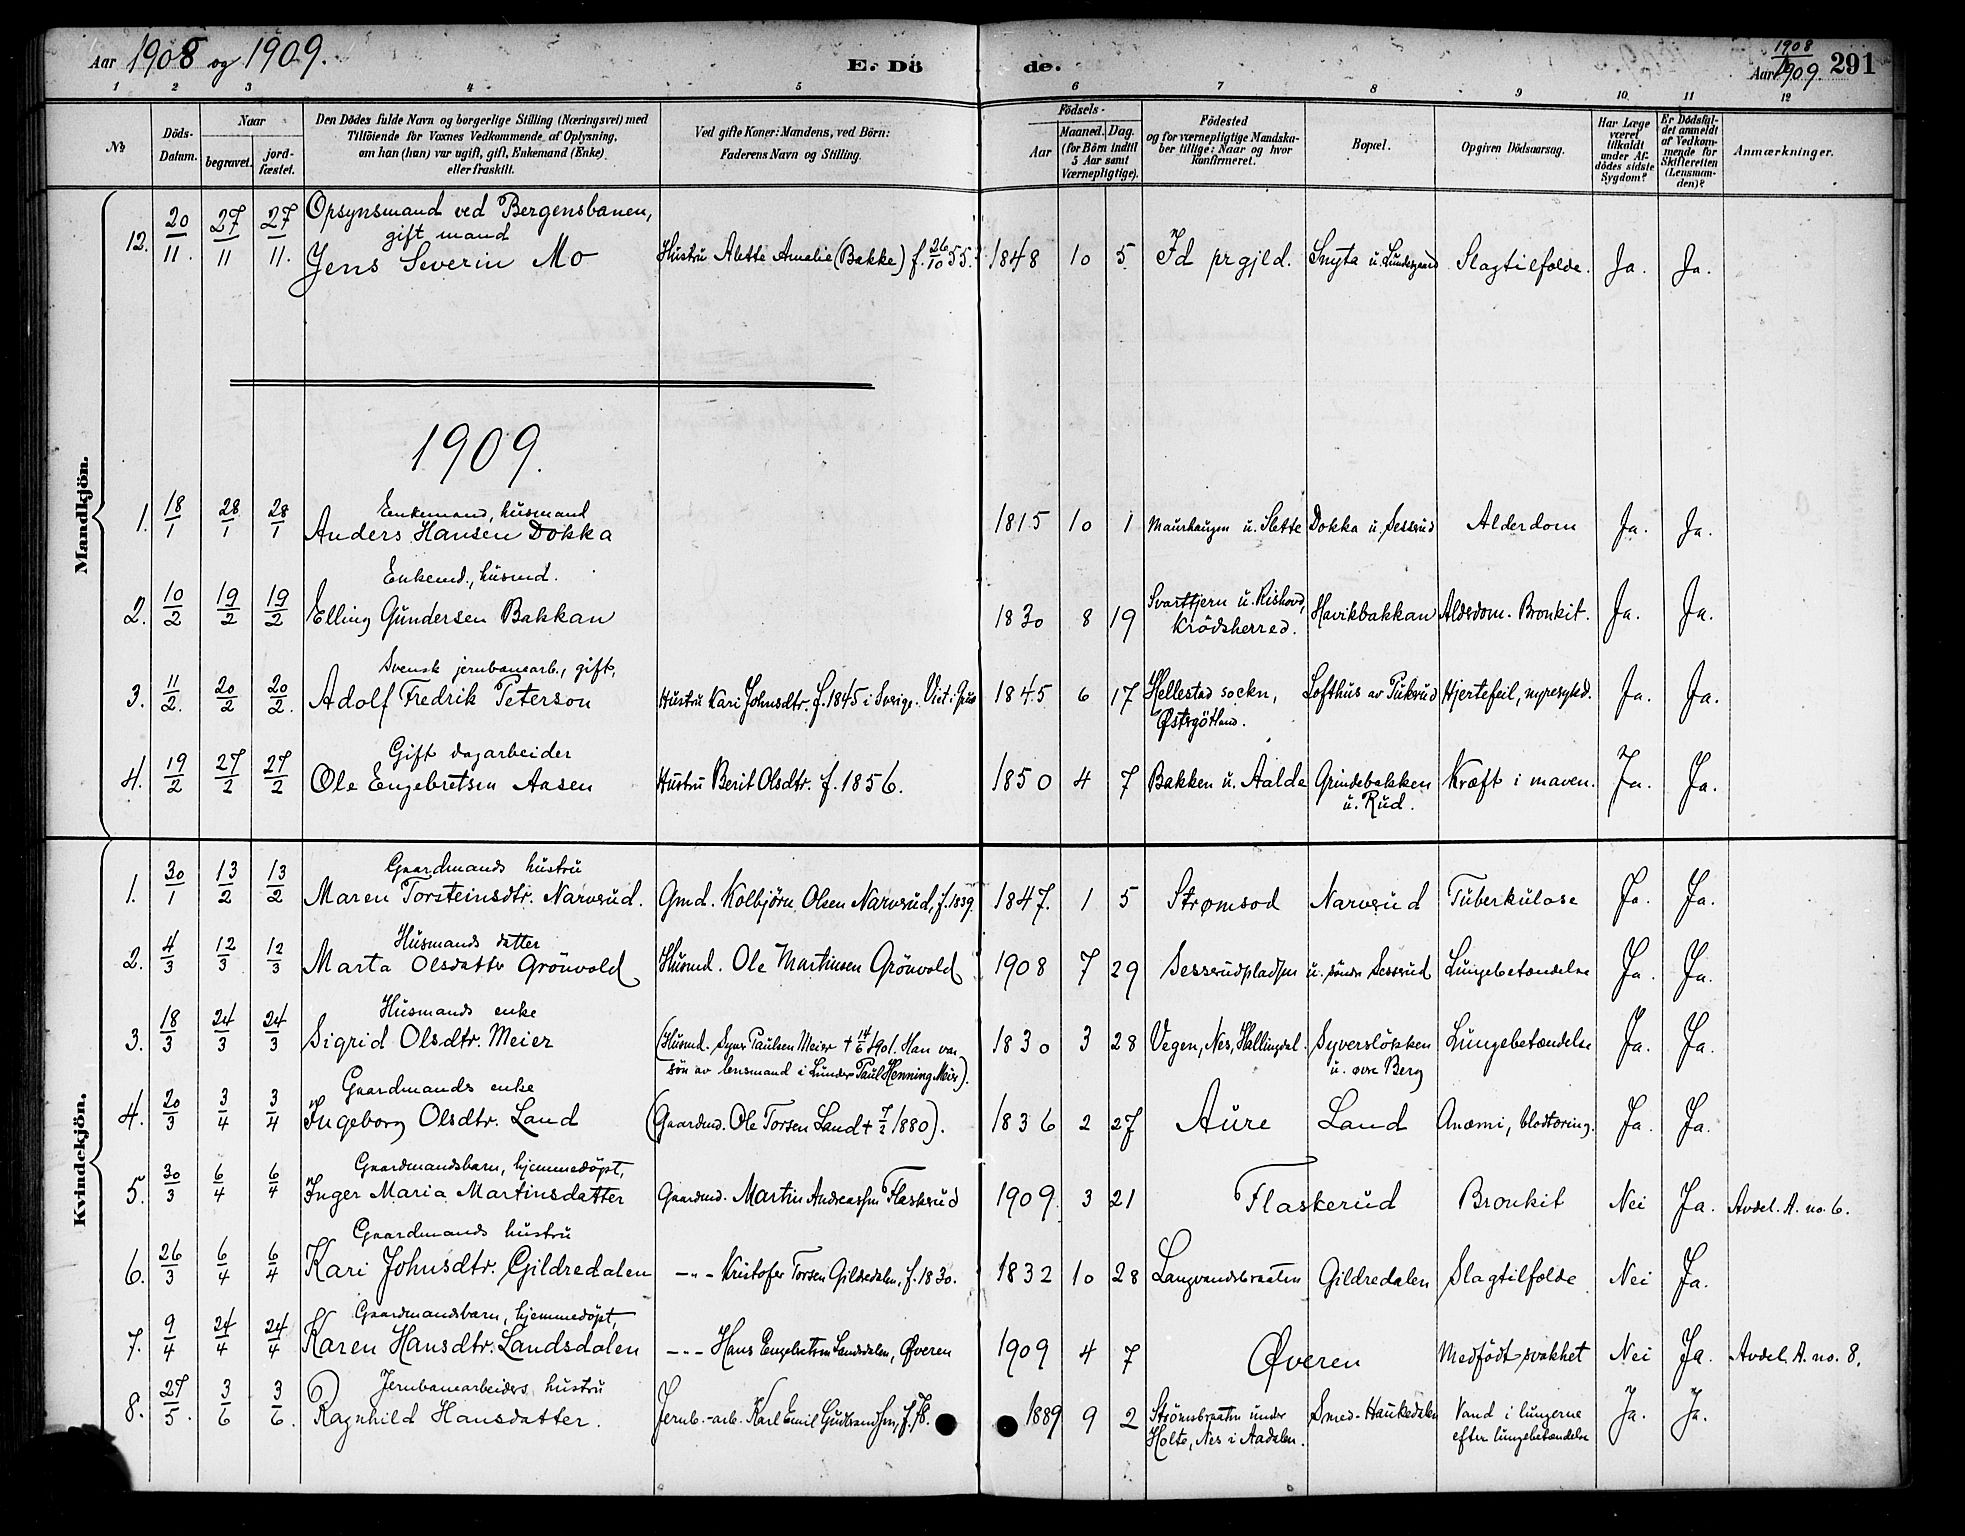 Aar 1908 og 1909.
E. Dö de.
1908
Aar 1909. 291
1 2 3 4 5 6 7 8 9 10 11 12
No
Döds-Datum.
Naar
begravet. jord-fæstet.
Den Dödes fulde Navn og borgerlige Stilling (Næringsvei) med
Tilföiende for Voxnes Vedkommende af Oplysning,
om han (hun) var ugift, gift, Enkemand (Enke)
eller fraskilt.
Ved gifte Koner: Mandens, ved Börn:
Faderens Navn og Stilling.
Födsels-
Aar
Maaned. Dag.
(for Börn indtil
5 Aar samt
Værnepligtige).
Födested
og for værnepligtige Mandska-
ber tillige: Naar og hvor
Konfirmeret.
Bopæl.
Opgiven Dödsaarsag.
Har Læge
været
tilkaldt
under Af-
dödes sidste
Sygdom?
Er Dödsfal-
det anmeldt
af Vedkom-
mende for
Skifteretten
(Lensman-
den)?
Anmærkninger.
Mandkjön.
Opsynsmand ved Bergensbanen,
gift mand
12. 20/11. 27/11 27/11. Jens Severin Mo Hustru Alette Amalie (Bakke) f. 26/10 55. 1848 10 5 Id prgjld. Snyta u. Lundesgaard Slagtilfælde. Ja. Ja.
1909.
Enkemand, husmand
1. 18/1 28/1 28/1 Anders Hansen Dokka 1815 10 1 Maurhaugen u. Slette Dokka u. Sesserud Alderdom Ja. Ja.
Enkemd., husmd.
2. 10/2 19/2 19/2 Elling Gundersen Bakkan 1830 8 19 Svarttjern u. Rishovd, Krödsherred. Havikbakkan Alderdom. Bronkit. Ja. Ja.
Svensk jernbanearb., gift,
3. 11/2. 20/2 20/2. Adolf Fredrik Peterson Hustru Kari Johnsdtr. f. 1845 i Sverige. Viet i 1845 6 17 Hellestad sockn, Østergötland. Lofthus av Pukerud Hjertefeil, nyresyked. Ja. Ja.
Gift dagarbeider
4. 19/2 27/2 27/2 Ole Engebretsen Aasen Hustru Berit Olsdtr. f. 1856. 1850 4 7 Bakken u. Aalde Grindebakken u. Rud. Kræft i maven. Ja. Ja.
Kvindekjön.
Gaardmands hustru
1. 30/1 13/2 13/2 Maren Torsteinsdtr. Narverud. Gmd. Kolbjörn Olsen Narverud, f. 1839. 1847. 1 5 Strømsod Narverud Tuberkulose Ja. Ja.
Husmands datter
2. 4/3 12/3 12/3 Marta Olsdatter Grönvold Husmd. Ole Martinsen Grönvold 1908 7 29 Sesserudpladsen u. söndre Sesserud Lungebetændelse Ja. Ja.
Husmands enke
3. 18/3 24/3 24/3 Sigrid Olsdtr. Meier (Husmd. Syver Paulsen Meier † 14/6 1901. Han var
sön av lensmand i Lunder Paul Henning Meier). 1830 3 28 Vegen, Nes, Hallingdal. Syverslökken u. övre Berg Lungebetændelse Ja. Ja.
Gaardmands enke
4. 20/3 3/4 3/4 Ingeborg Olsdtr. Land (Gaardmd. Ole Torsen Land † 7/2 1880). 1836 2 27 Aure Land Anæmi, blodtæring. Ja. Ja.
Gaardmandsbarn, hjemmedöpt,
5. 30/3 6/4 6/4 Inger Maria Martinsdatter Gaardmd. Martin Andreassen Flaskerud 1909 3 21 Flaskerud Bronkit Nei Ja. Avdel. A. no. 6.
Gaardmands hustru
6. 26/3 6/4 6/4 Kari Johnsdtr. Gildredalen –"– Kristofer Torsen Gildredalen, f. 1830. 1832 10 28 Langvandsbraaten Gildredalen Slagtilfælde Nei Ja.
Gaardmandsbarn, hjemmedöpt,
7. 9/4 24/4 24/4 Karen Hansdtr. Landsdalen –"– Hans Engebretsen Landsdalen, Øveren 1909 4 7 Øveren Medfödt svakhet Nei Ja. Avdel. A. no. 8.
Jernbanearbeiders hustru
8. 27/5. 3/6 3/6. Ragnhild Hansdatter. Jernb.-arb. Karl Emil Gudbrandsen, f. 78. 1889 9 2 Strömsbraaten under Holte, Nes i Aadalen. Smed-Haukedalen Vand i lungerne efter lungebetændelse Ja. Ja.